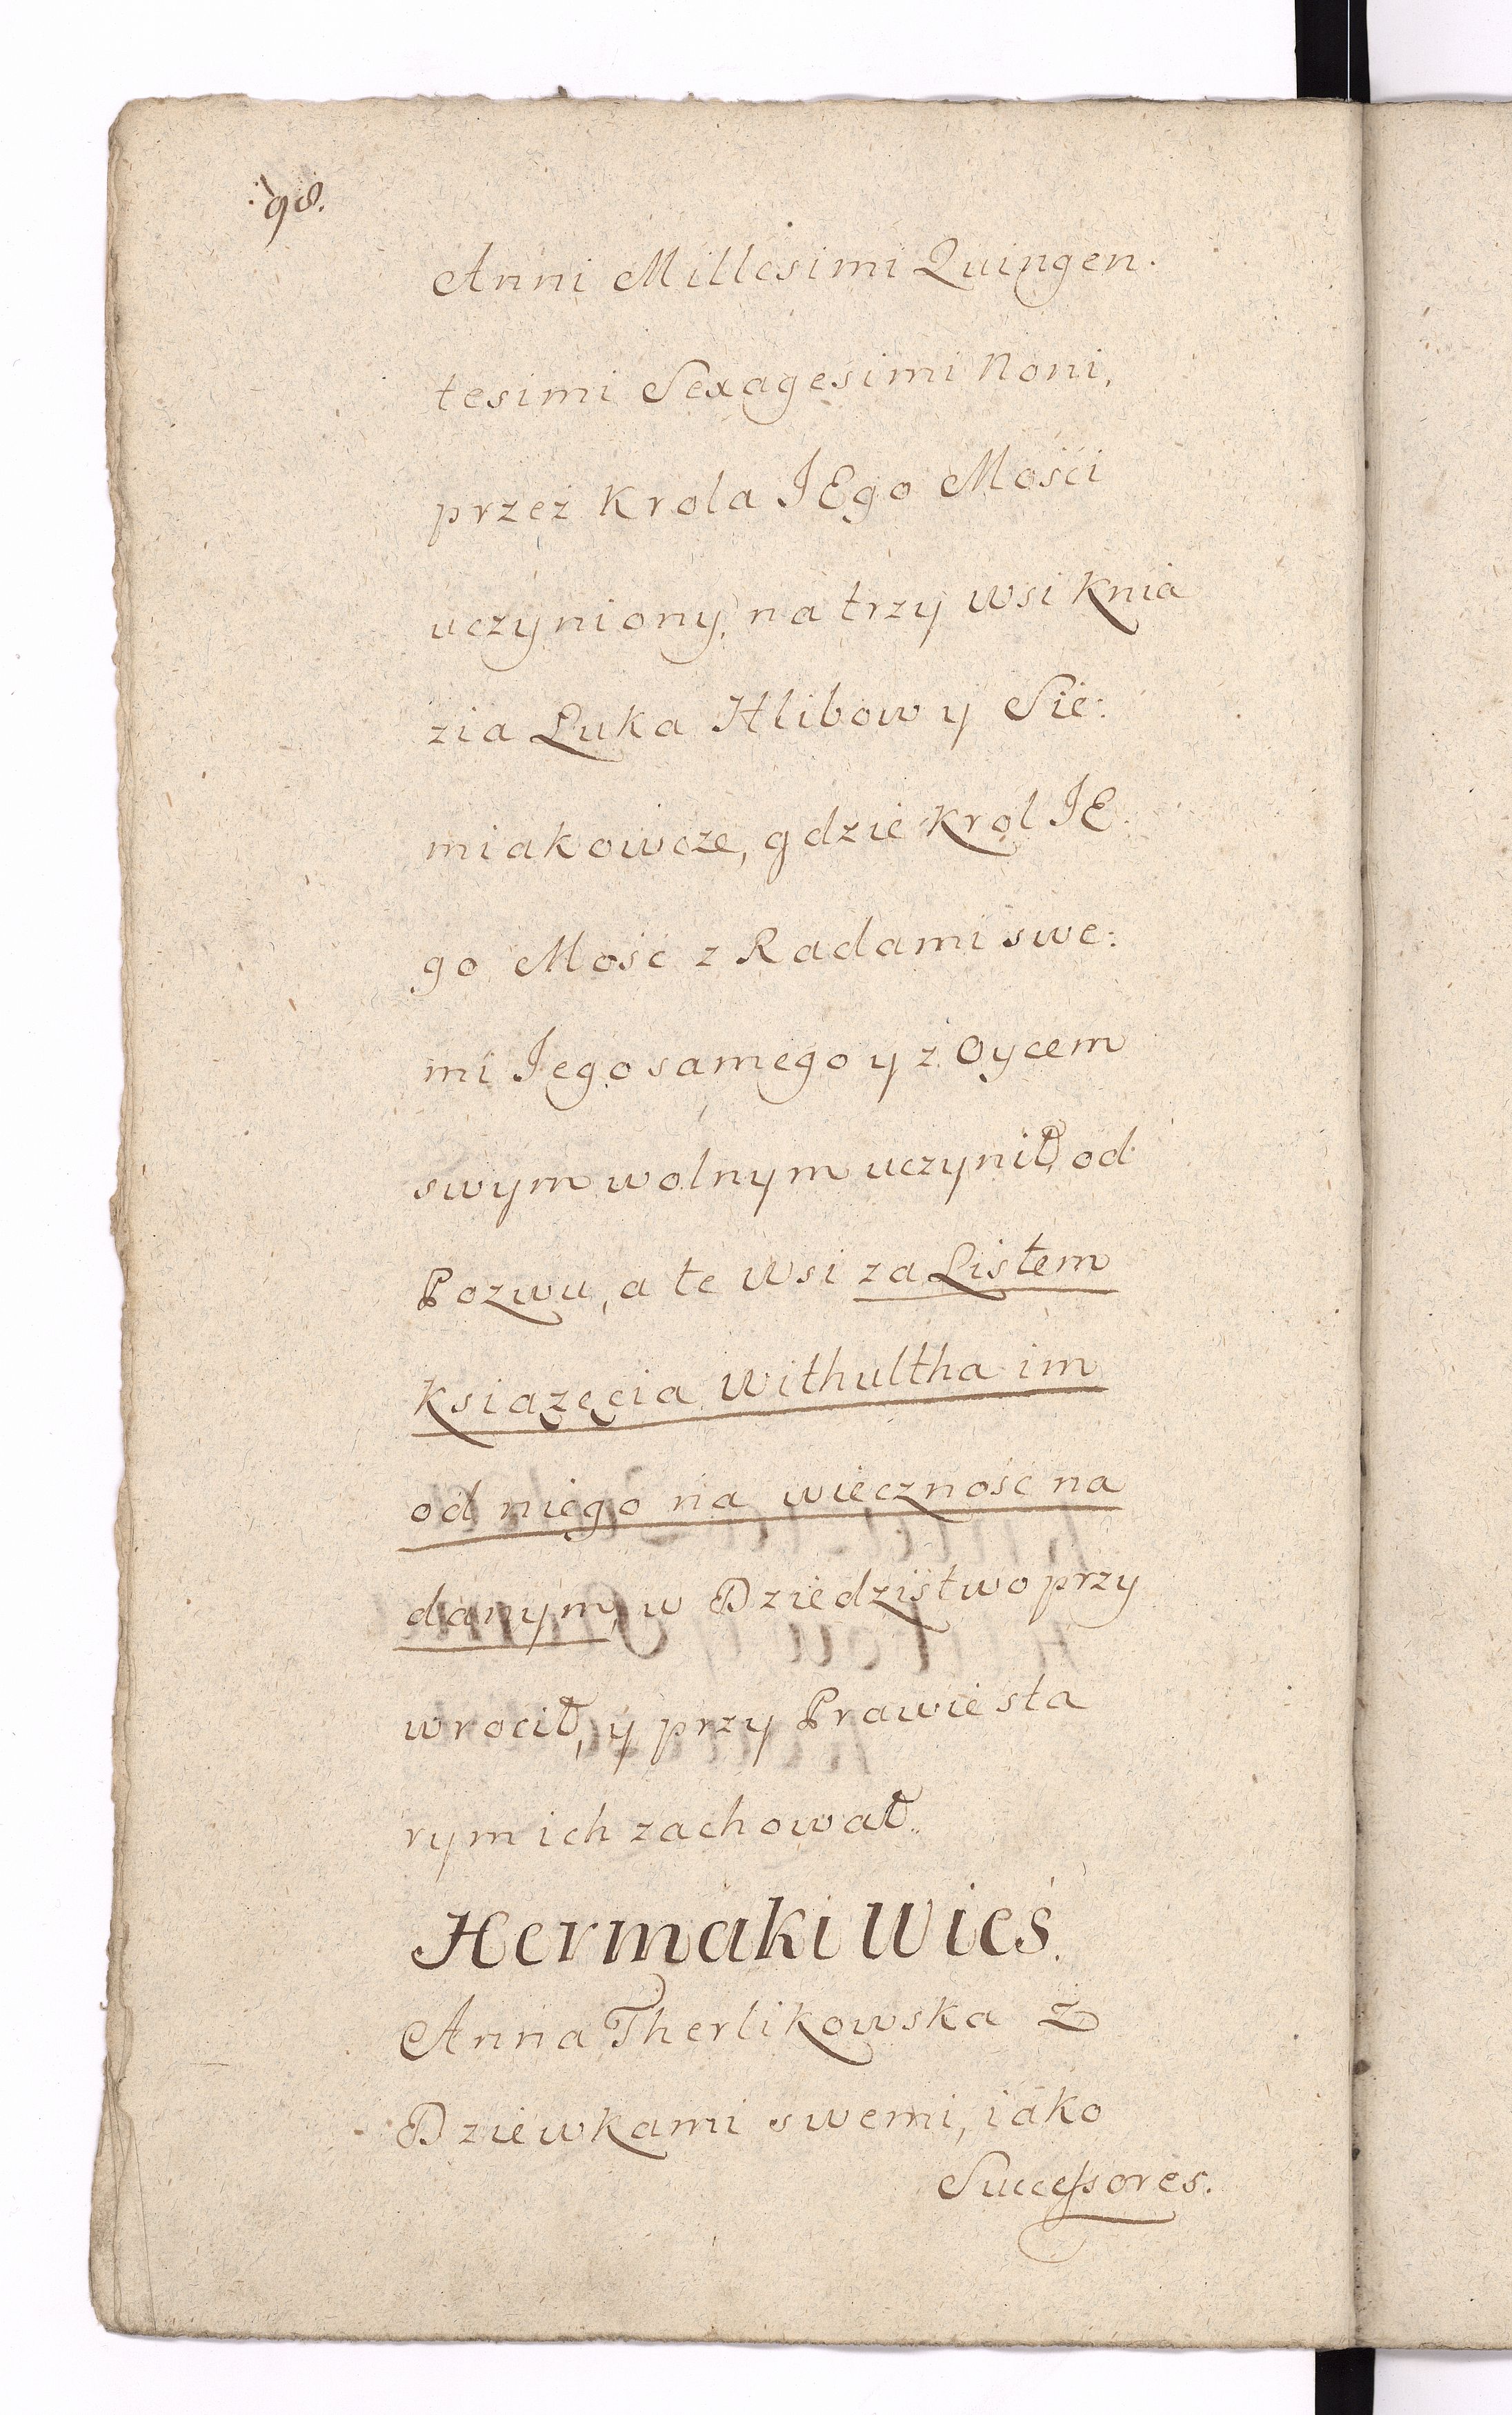 98.
Anni Millesimi Quingen.
tesimi Sexagesimi Noni,
przez Krola JEgo Mości
uczyniony, na trzy wsi Knia
zia Luka Hlibow y Sie:
miakowcze, gdzie Krol JE.
go Mość z Radami swe:
mi Jego samego y z Oycem
swym wolnym uczynił, od
Pozwu, a te Wsi za Listem
Ksiazęcia Withultha im
od niego na wieczność na
danym, w Dziedzistwo przy
wrocił, y przy Prawie sta
rym ich zachował.
Hermaki Wieś.
Anna Therlikowska z
Dziewkami swemi, iako
Successores.